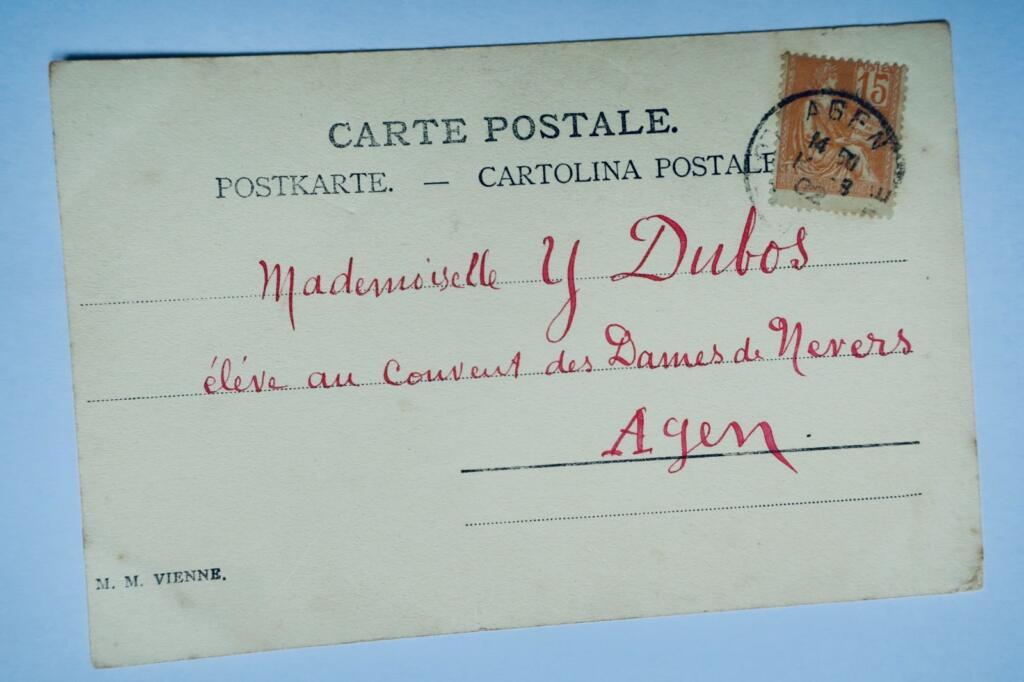 CARTE POSTALE.
POSTKARTE. — CARTOLINA POSTALE
POSTE
15
AGEN
14
02
Mademoiselle Y Dubos
élève au Couvent des Dames de Nevers
Agen.
M. M. VIENNE.